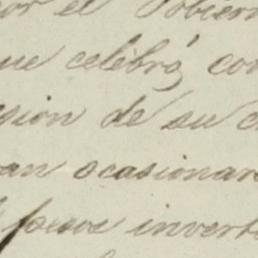 or el Gobiern
ue celebró, con
sion de su c
an ocasionar
invert